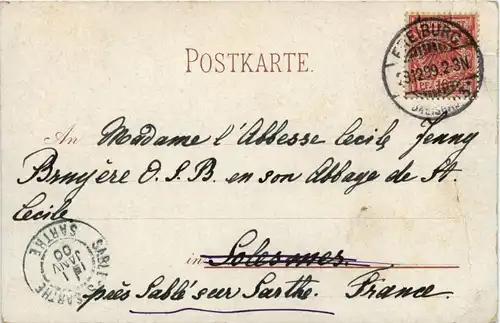 FREIBURG
2-3N
POSTKARTE.
An Madame l'Abbesse Cecile Jenny
Bruyère O.S.B. en son Abbaye de St.
Cecile
in Solesmes.
près Sablé sur Sarthe. France.
SABLÉ-S-SARTHE
JANV
00
SARTHE